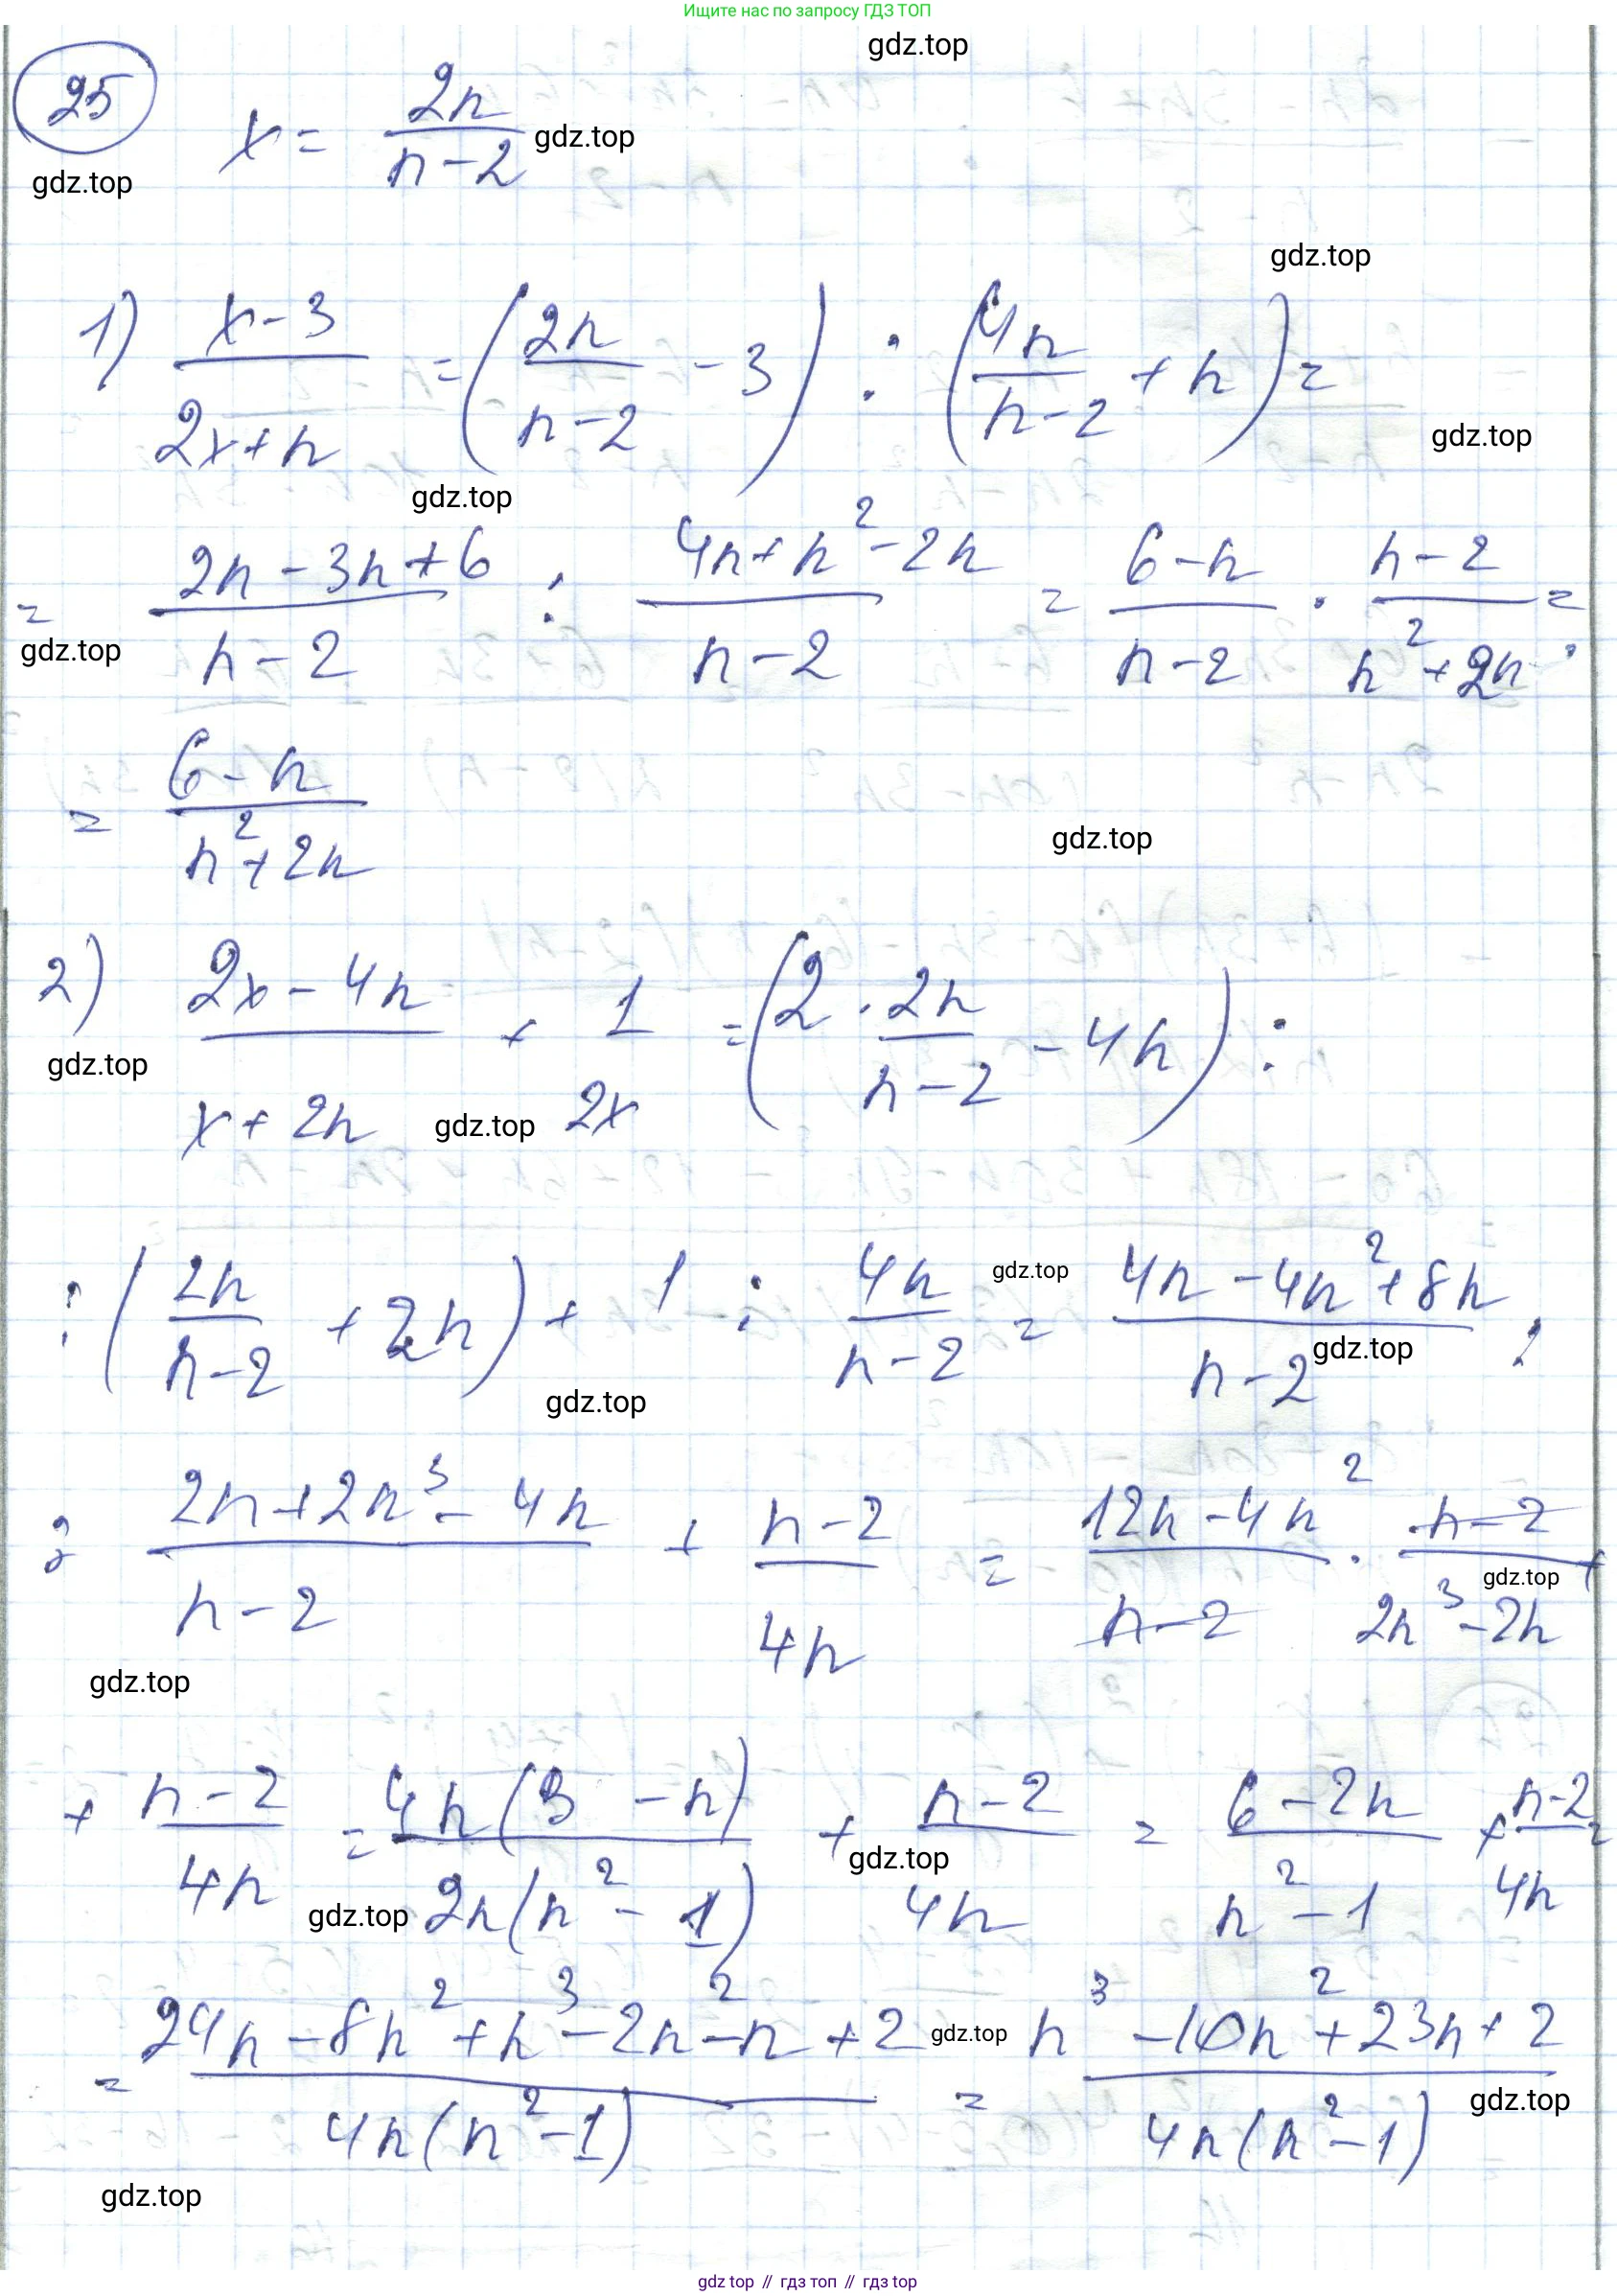 Ищите нас по запросу ГДЗ ТОП
gdz.top
25 x = 2n/(n-2) gdz.top
gdz.top
gdz.top
1) (x-3)/(2x+n) = (2n/(n-2) - 3) : (4n/(n-2) + n) =
gdz.top
gdz.top
= (2n-3n+6)/(n-2) : (4n+n²-2n)/(n-2) = (6-n)/(n-2) · (n-2)/(n²+2n) =
gdz.top
= (6-n)/(n²+2n)
gdz.top
2) (2x-4n)/(x+2n) + 1/(2x) = (2 · 2n/(n-2) - 4n) :
gdz.top
gdz.top
: (2n/(n-2) + 2n) + 1 : 4n/(n-2) = (4n-4n²+8n)/(n-2) :
gdz.top
gdz.top
gdz.top
: (2n+2n³-4n)/(n-2) + (n-2)/(4n) = (12n-4n²)/(n-2) · (n-2)/(2n³-2n) +
gdz.top
gdz.top
+ (n-2)/(4n) = 4n(3-n)/(2n(n²-1)) + (n-2)/(4n) = (6-2n)/(n²-1) + (n-2)/(4n) =
gdz.top
gdz.top
= (24n-8n²+n³-2n²-n+2)/(4n(n²-1)) = (n³-10n²+23n+2)/(4n(n²-1))
gdz.top
gdz.top
gdz.top
gdz top // гдз топ // гдз top